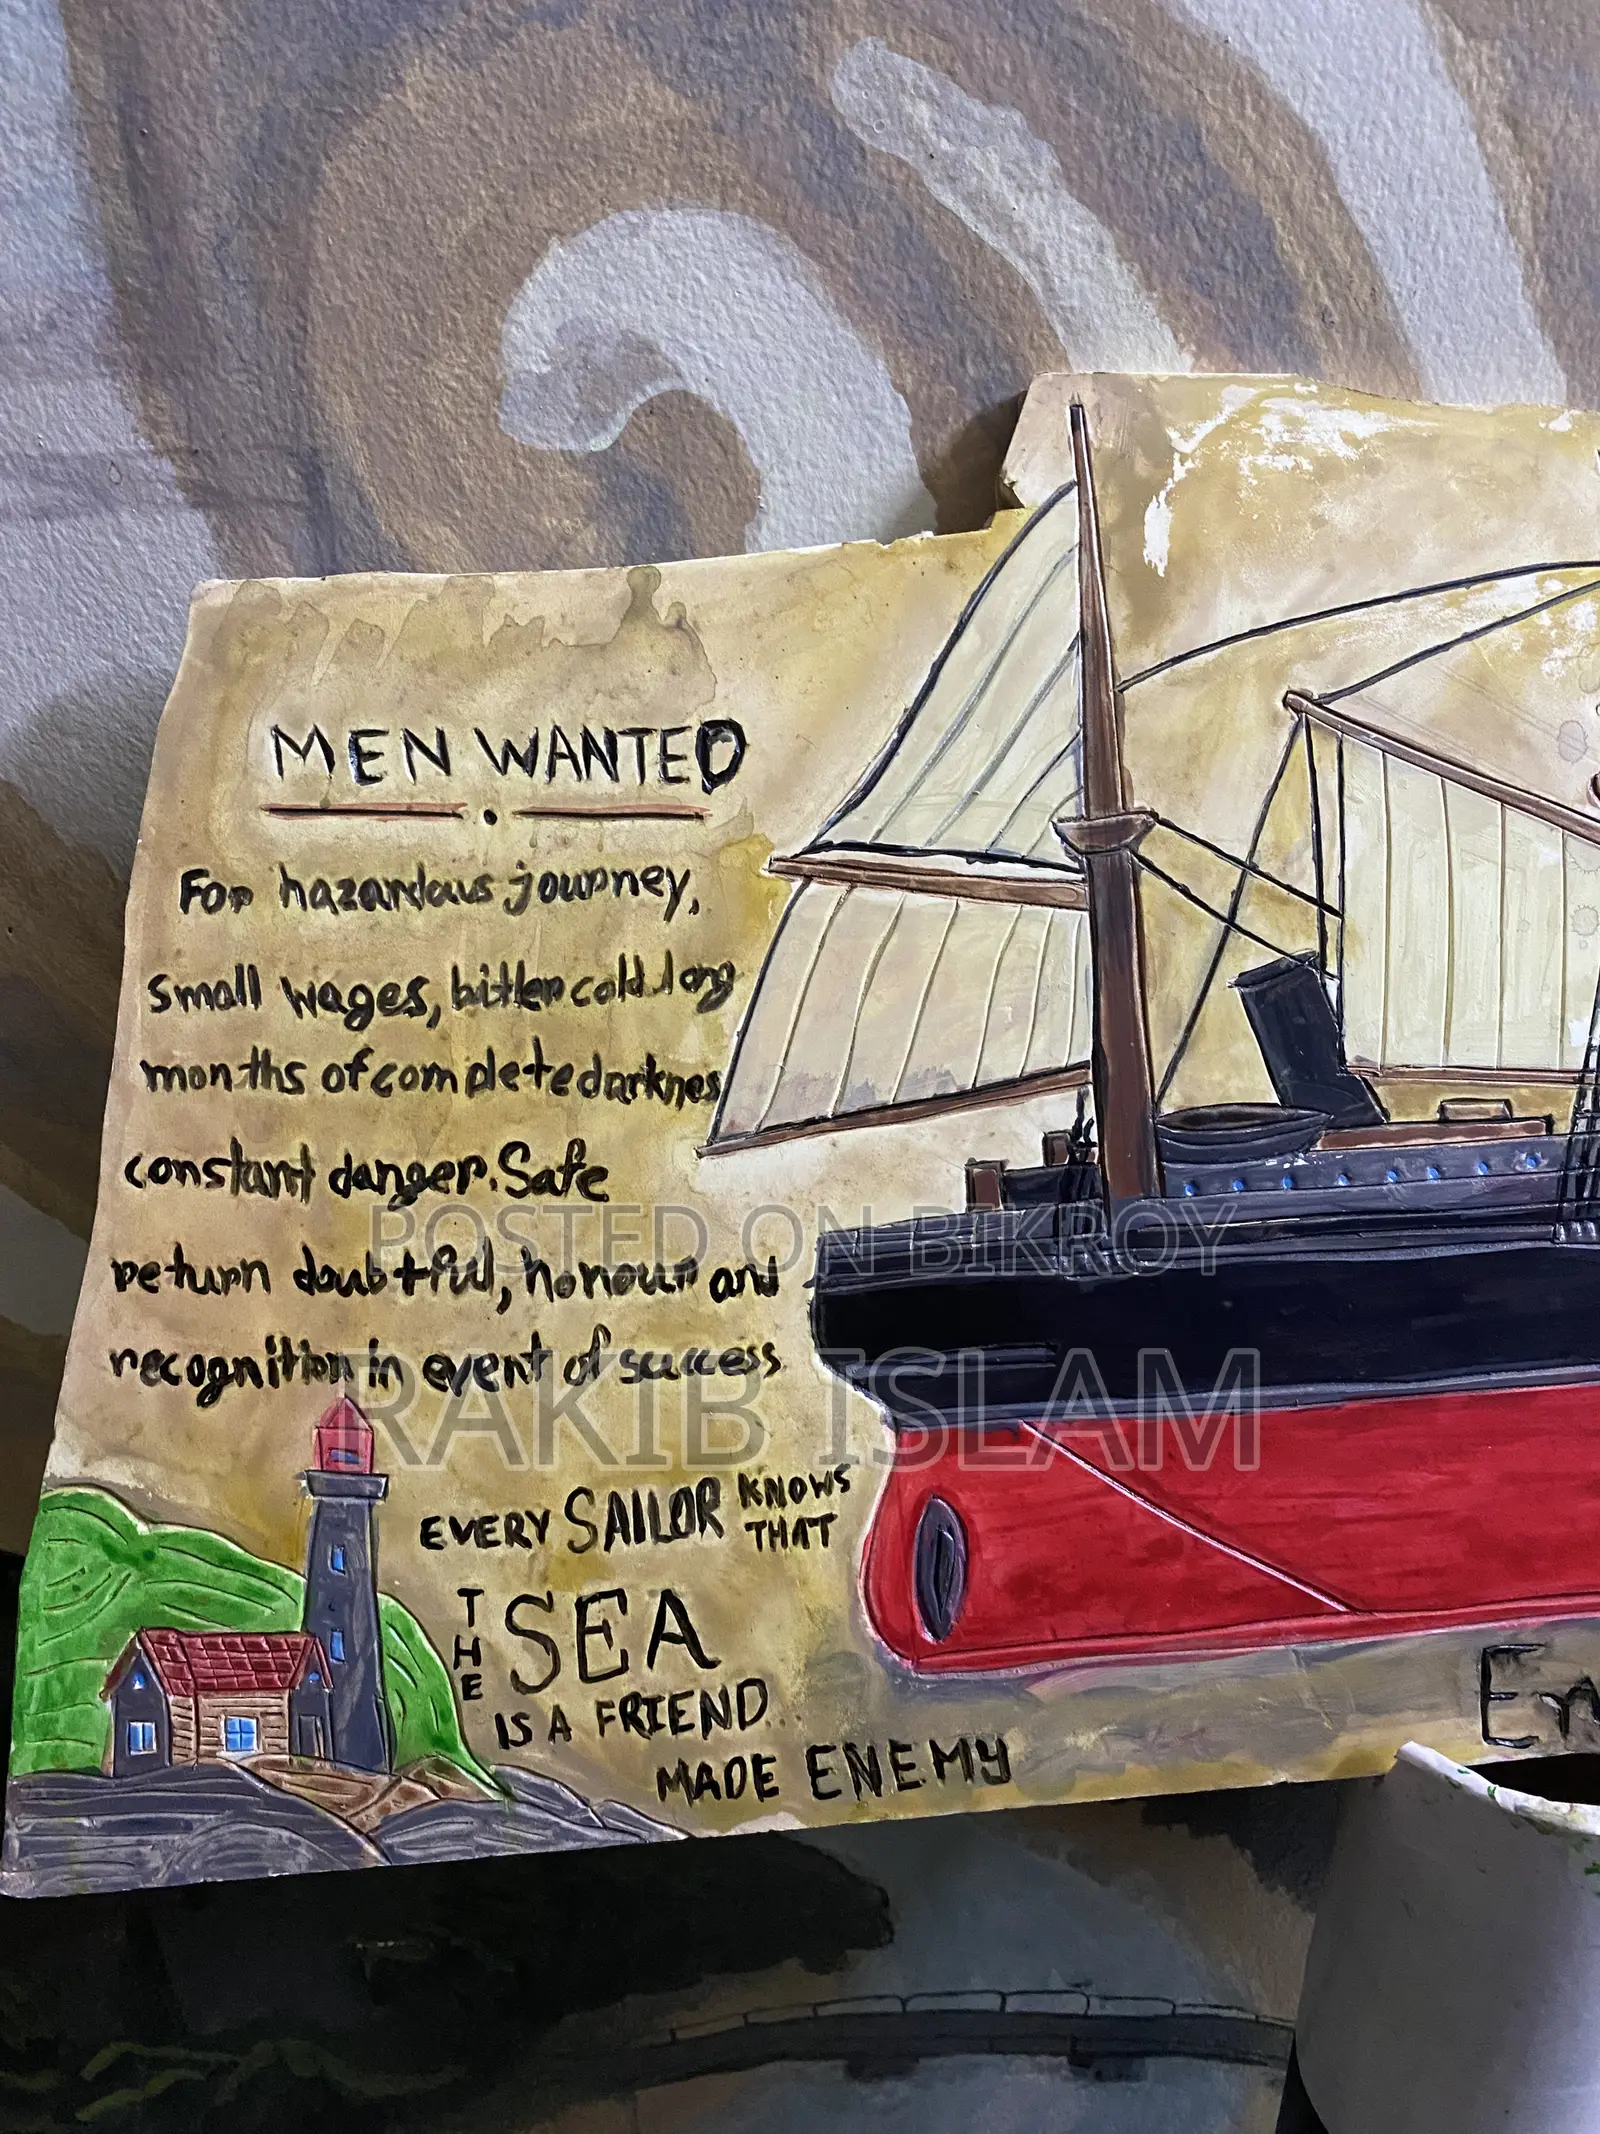 MEN WANTED
For hazardous journey,
small wages, bitter cold. long
months of complete darknes
constant danger. Safe
return doubtful, honour and
recognition in event of success
EVERY SAILOR KNOWS
THAT
THE SEA
IS A FRIEND
MADE ENEMY
En
POSTED ON BIKROY
RAKIB ISLAM